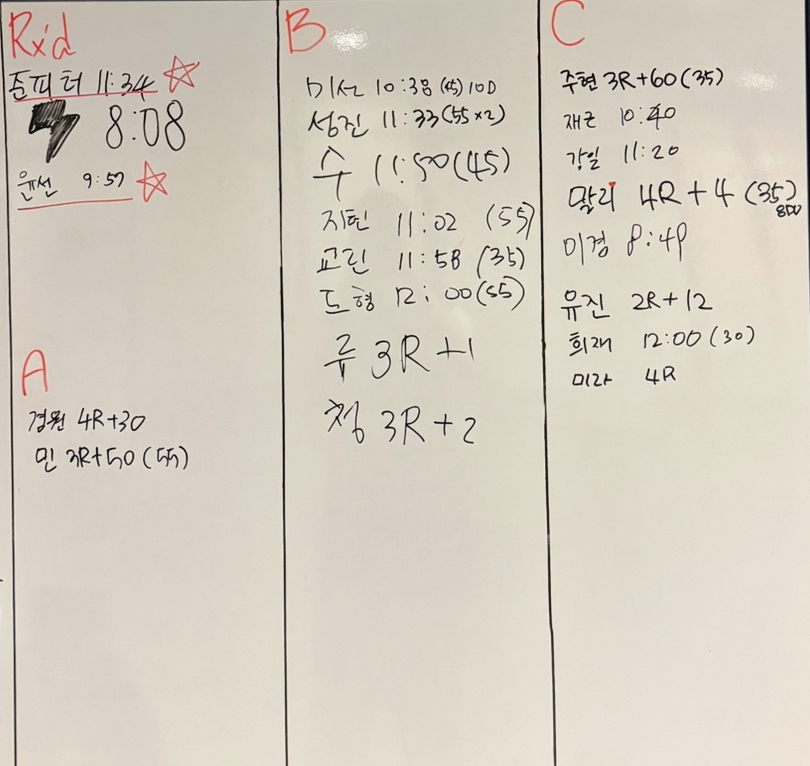 Rx'd
쥰피터 11:34
8:08
윤선 9:57
A
경원 4R+30
민 3R+50 (55)
B
미선 10:38 (45) 10D
성진 11:33 (55×2)
수 11:50 (45)
지현 11:02 (55)
교린 11:58 (35)
도형 12:00 (55)
류 3R+1
청 3R+2
C
주현 3R+60 (35)
재근 10:40
강일 11:20
말리 4R+4 (35)
8DU
이경 8:49
유진 2R+12
희재 12:00 (30)
미라 4R